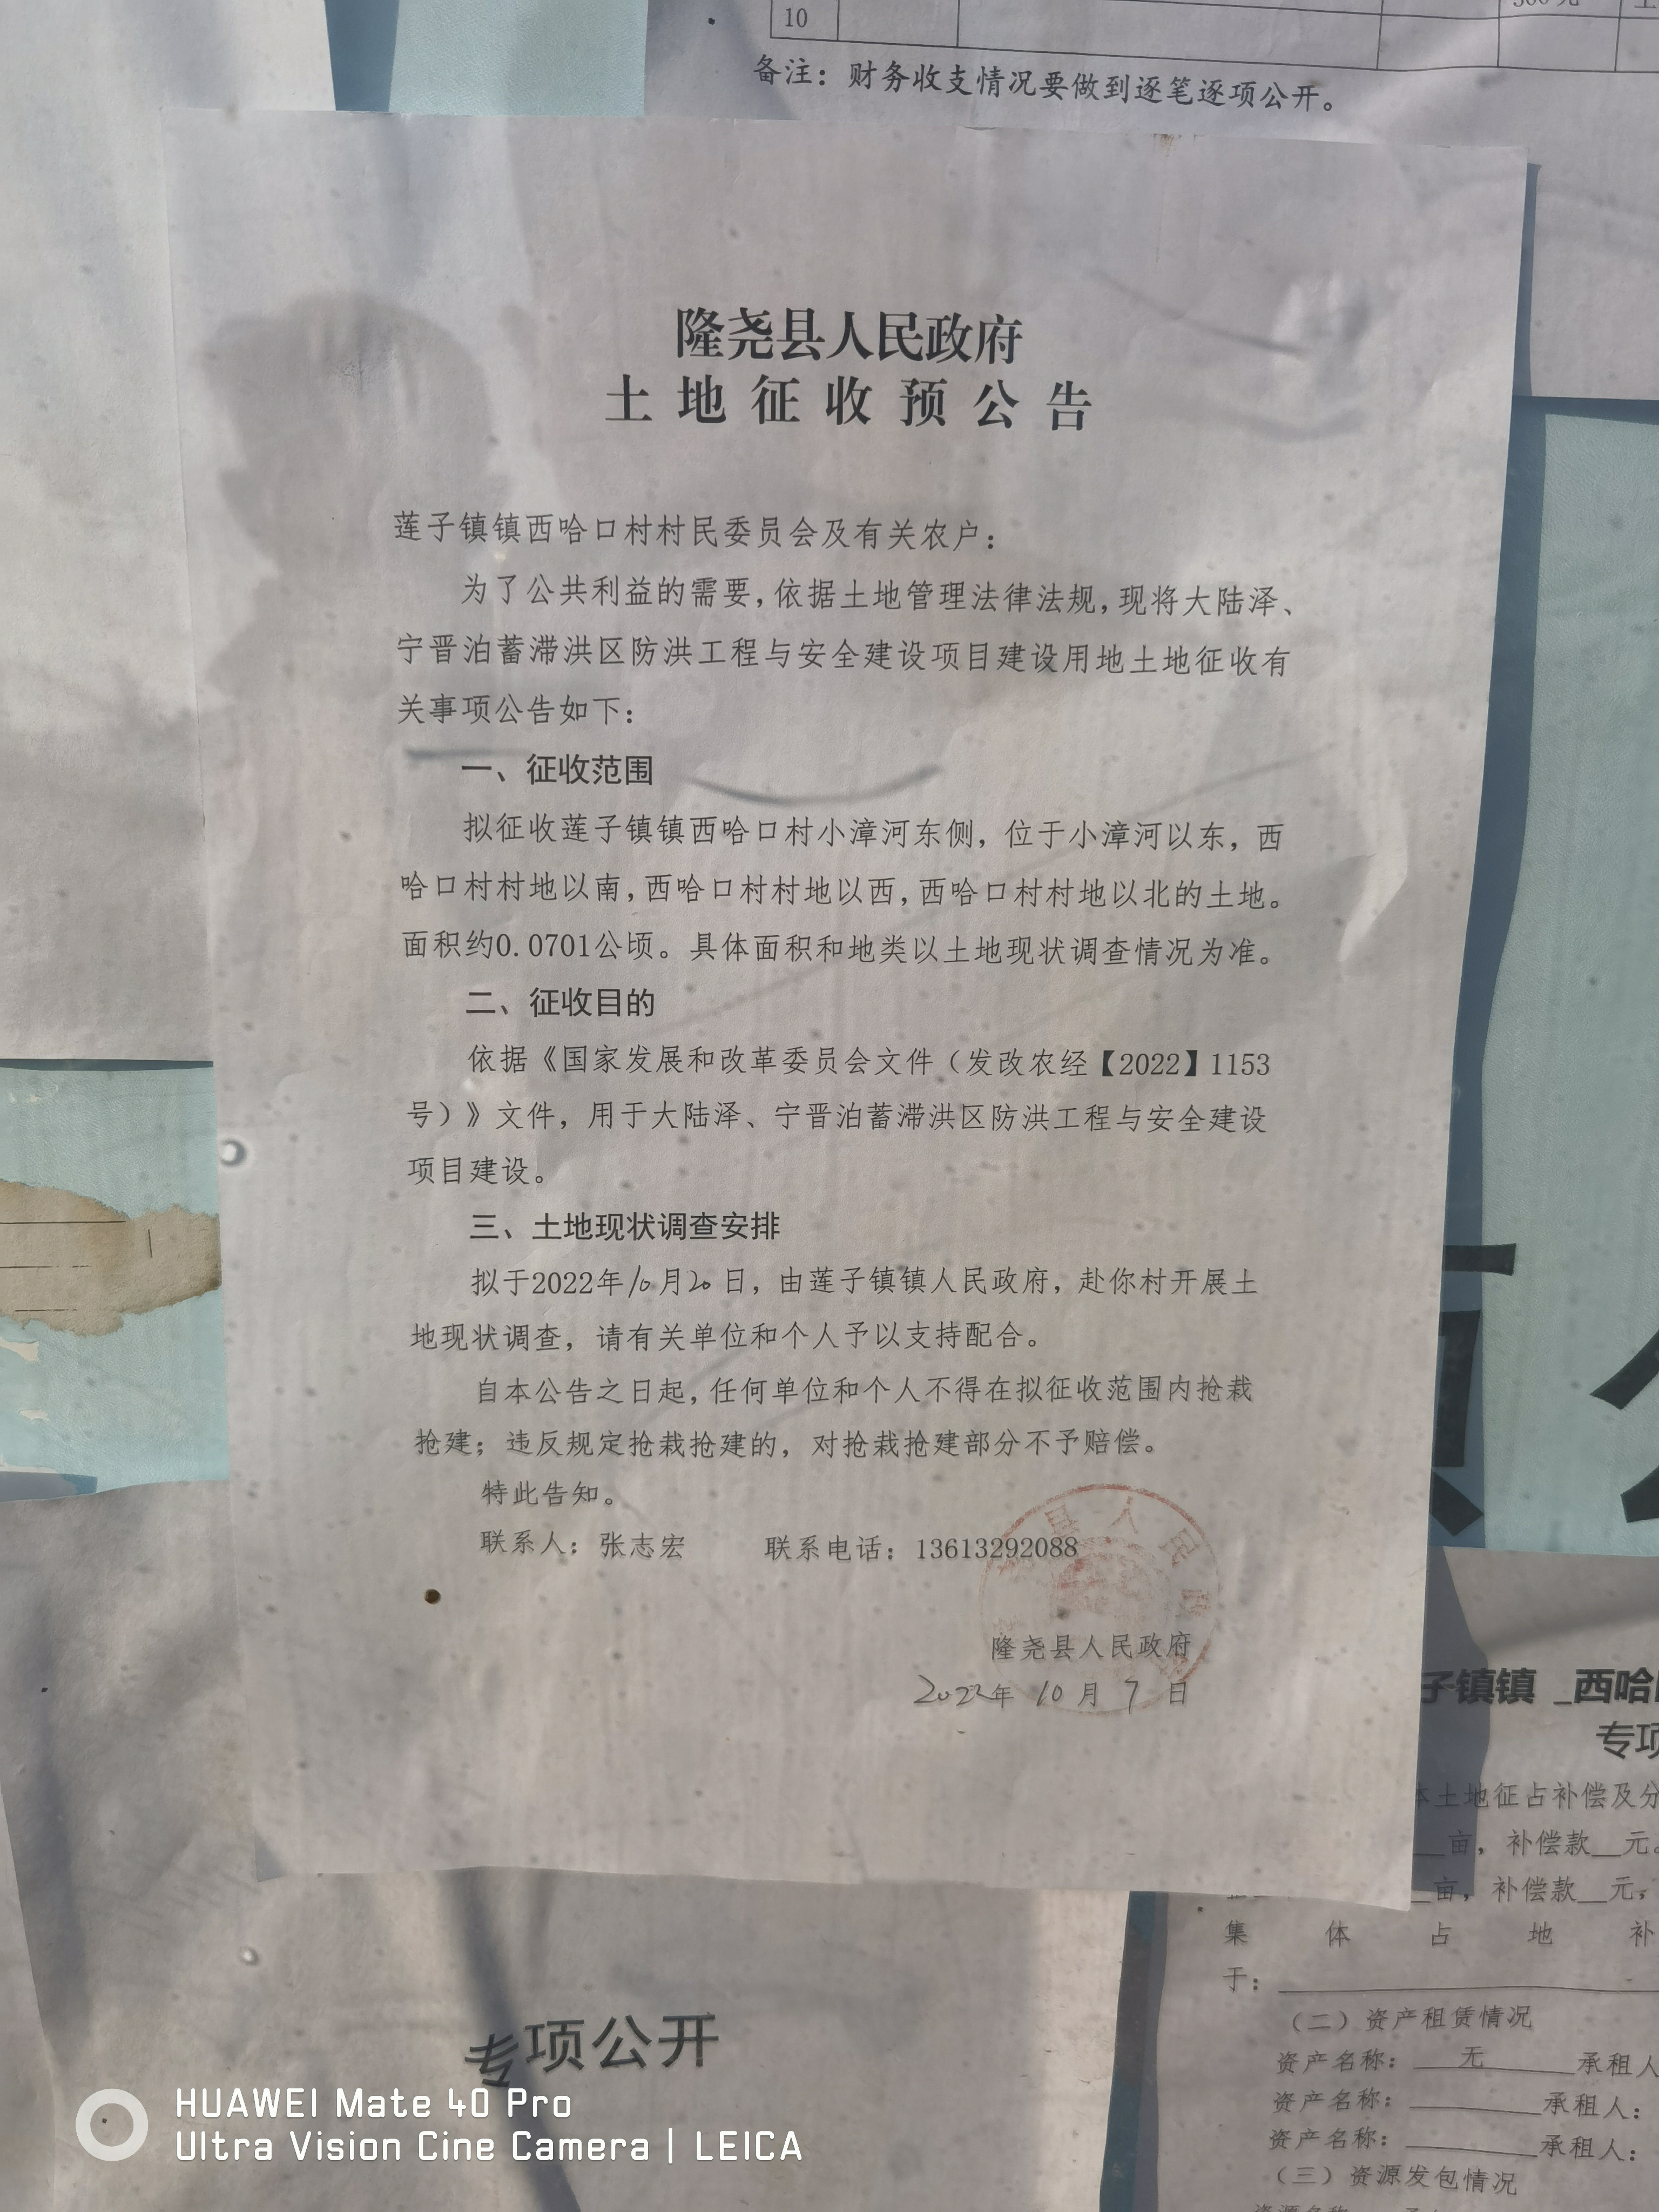 10
备注：财务收支情况要做到逐笔逐项公开。
隆尧县人民政府
土地征收预公告
莲子镇镇西哈口村村民委员会及有关农户：
为了公共利益的需要，依据土地管理法律法规，现将大陆泽、
宁晋泊蓄滞洪区防洪工程与安全建设项目建设用地土地征收有
关事项公告如下：
一、征收范围
拟征收莲子镇镇西哈口村小漳河东侧，位于小漳河以东，西
哈口村村地以南，西哈口村村地以西，西哈口村村地以北的土地。
面积约0.0701公顷。具体面积和地类以土地现状调查情况为准。
二、征收目的
依据《国家发展和改革委员会文件（发改农经【2022】1153
号）》文件，用于大陆泽、宁晋泊蓄滞洪区防洪工程与安全建设
项目建设。
三、土地现状调查安排
拟于2022年10月20日，由莲子镇镇人民政府，赴你村开展土
地现状调查，请有关单位和个人予以支持配合。
自本公告之日起，任何单位和个人不得在拟征收范围内抢栽
抢建；违反规定抢栽抢建的，对抢栽抢建部分不予赔偿。
特此告知。
联系人：张志宏 联系电话：13613292088
隆尧县人民政府
2022年 10 月 7 日
子镇镇 _西哈
专项
土地征占补偿及分
亩，补偿款__元。
亩，补偿款__元，
集体占地补
于：
（二）资产租赁情况
资产名称：无 承租人
资产名称： 承租人：
资产名称： 承租人：
（三）资源发包情况
专项公开
HUAWEI Mate 40 Pro
Ultra Vision Cine Camera | LEICA